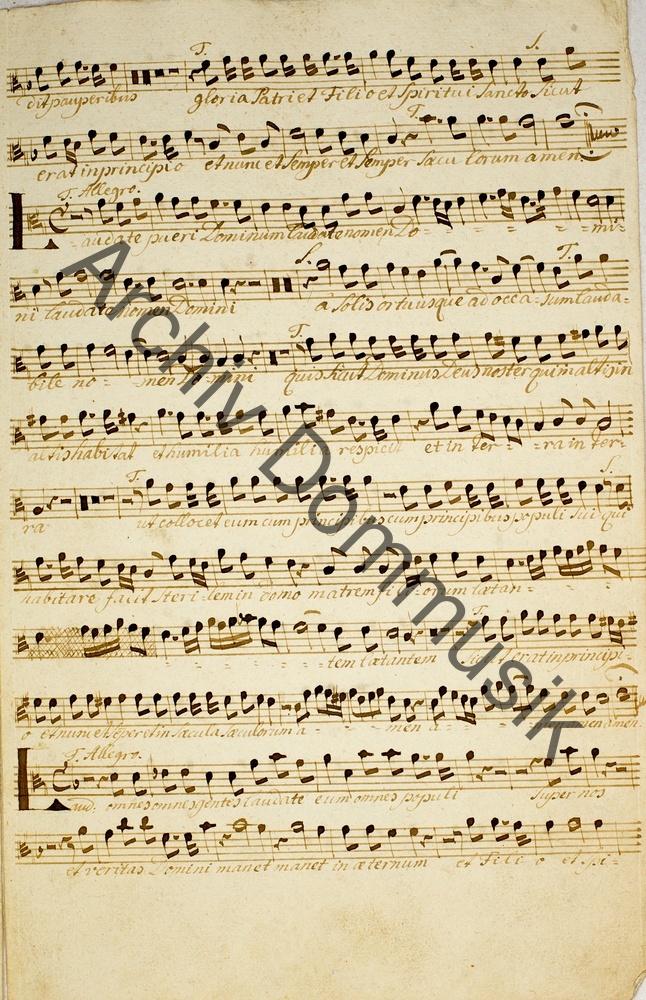 T. S.
dit pauperibus gloria Patri et Filio et Spiritui Sancto Sicut
T.
erat in principio et nunc et Semper et Semper Sæculorum amen.
T. Allegro.
Laudate pueri Dominum laudate nomen Do- mi-
S. T.
ni laudate nomen Domini a Solis ortu usque ad occa- sum lauda-
T.
bile no- men Domini quis Sicut Dominus Deus noster qui in altis in
altis habitat et humilia humilia respicit et in ter- ra in ter-
T. S.
ra ut collocet eum cum principibus cum principibus populi Sui qui
habitare facit Steri- lem in domo matrem filiorum lætan-
T.
tem lætantem Sicut erat in principi-
o et nunc et Seper et in Sæcula Sæculorum a- men a- men amen.
T. Allegro.
Laud. omnes omnes gentes laudate eum omnes populi Super nos
et veritas Domini manet manet in æternum et Fili o et Spi-
Archiv Dommusik